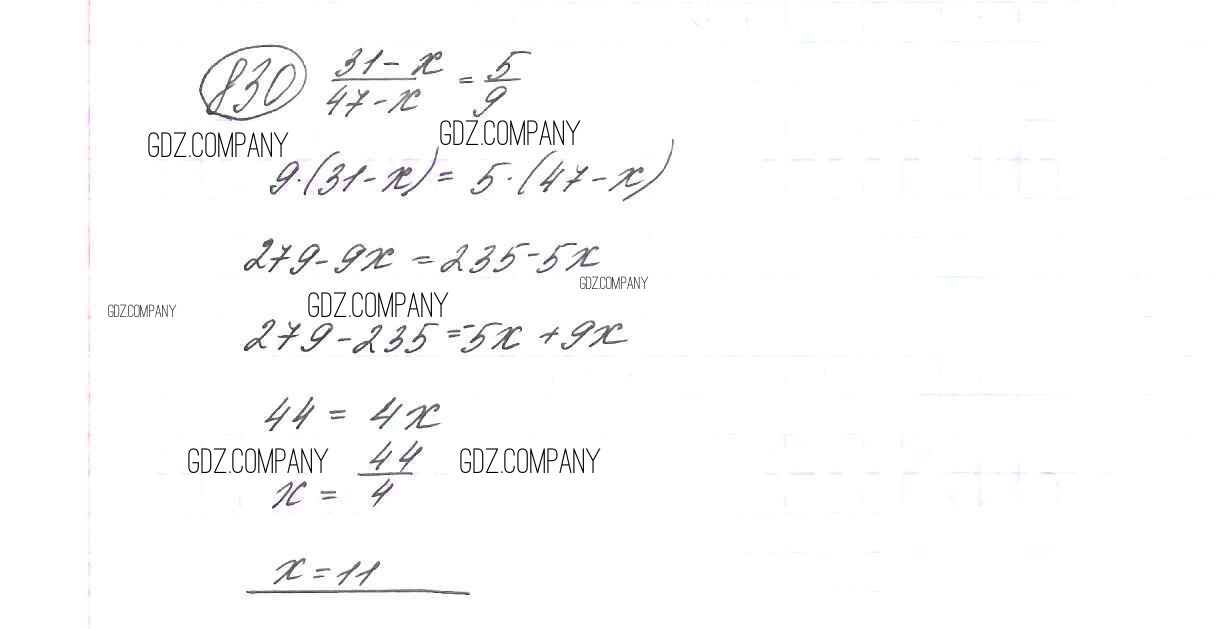 830 (31-x)/(47-x) = 5/9
GDZ.COMPANY GDZ.COMPANY
9·(31-x) = 5·(47-x)
279-9x = 235-5x
GDZ.COMPANY
GDZ.COMPANY GDZ.COMPANY
279-235=-5x+9x
44 = 4x
GDZ.COMPANY GDZ.COMPANY
x = 44/4
x = 11